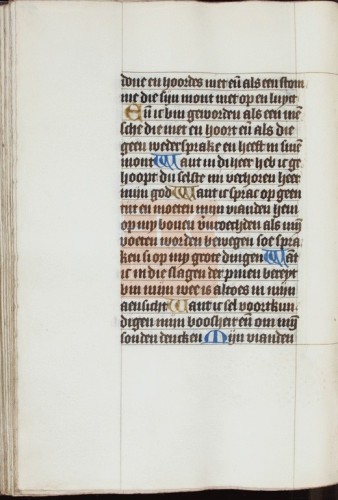 doue en hoordes niet en̄ als een stom
me die sijn mont niet op en luyct
En̄ ic bin geworden als een mē
sche die niet en hoort en̄ als die
geen wedersprake en heeft in sinē
mont Want in di heer heb ic ge
hoopt du selste mi verhoren heer
mijn god Want ic sprac op geen
tit en moeten mijn vianden hem
op my boven verechden als mijn
voeten worden bewegen soe spra
ken si op my grote dingen Wāt
ic in die slagen der pinen bereyt
bin mijn wee is altoes in mijn
aensicht Want ic sel voortkun
digen mijn boosheit en̄ om mijn
sonden dencken Mijn vianden